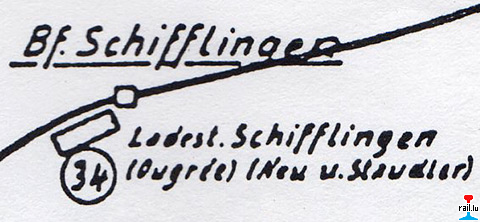 Bf. Schifflingen
Ladest. Schifflingen
34 (Ougrée) (Neu u. Staudler)
rail.lu